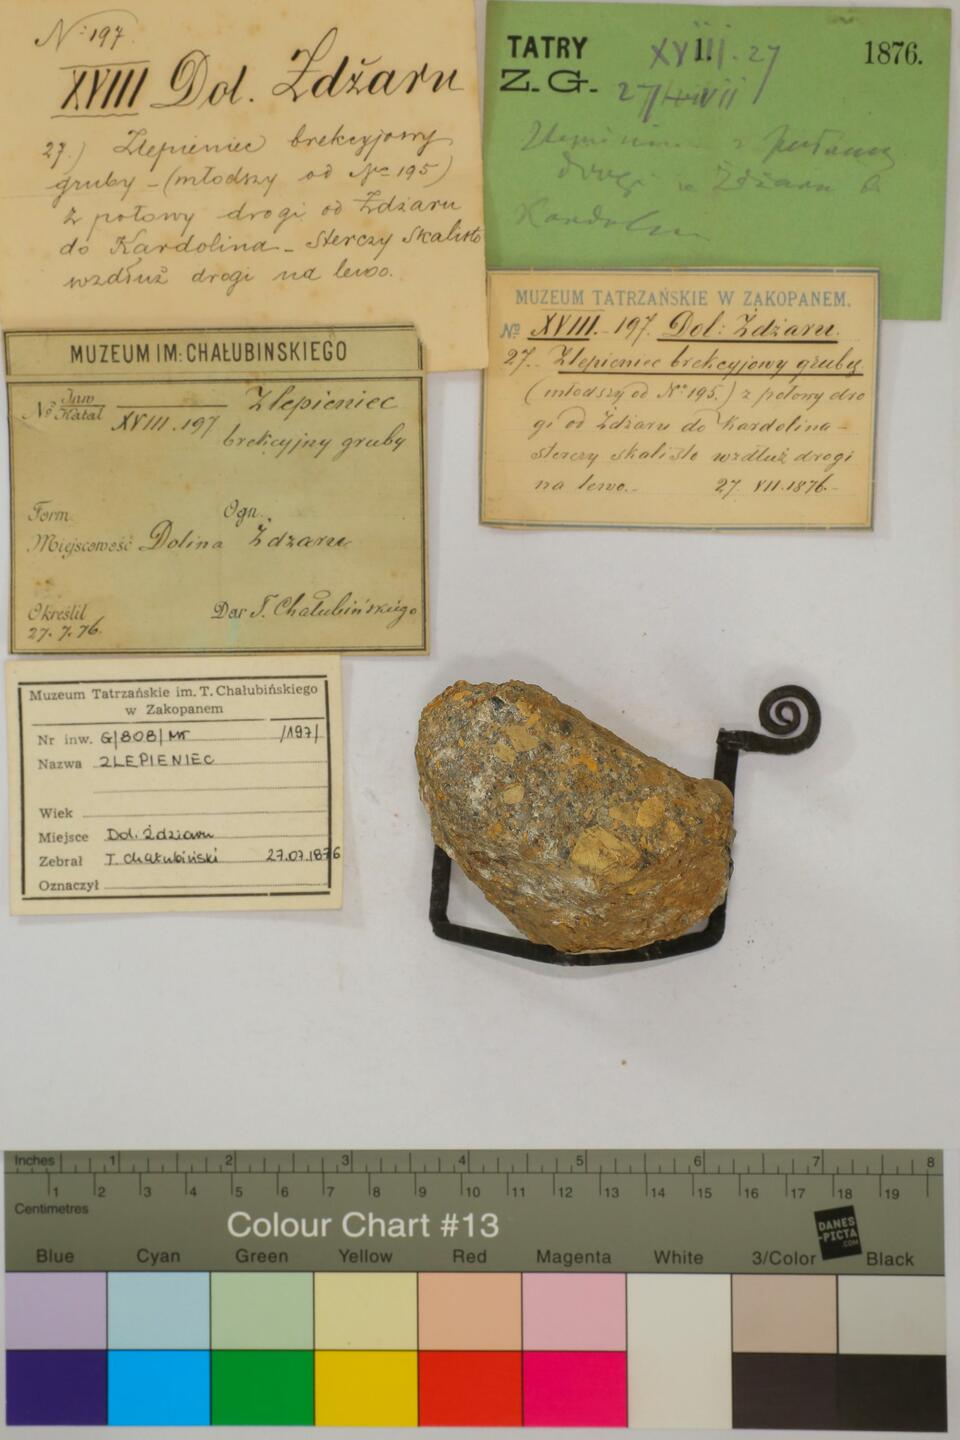 N: 197
XVIII Dol. Zdżaru
27.) Zlepieniec brekcyjowy
gruby – (młodszy od No 195)
z połowy drogi od Zdżaru
do Kardolina – sterczy skalisto
wzdłuż drogi na lewo.
TATRY XVIII. 27 1876.
Z. G. 27/VII
z połowy
drogi w Zdżaru
MUZEUM TATRZAŃSKIE W ZAKOPANEM.
No XVIII. – 197. Dol: Żdżaru.
27. Zlepieniec brekcyjowy gruby
(młodszy od No 195.) z połowy dro
gi od Żdżaru do Kardolina –
sterczy skalisto wzdłuż drogi
na lewo. – 27. VII. 1876. –
MUZEUM IM: CHAŁUBINSKIEGO
No Inw Katal XVIII. 197 Zlepieniec
brekcyjny gruby
Form. Ogn.
Miejscowość Dolina Żdzaru
Określił Dar T. Chałubińskiego
27. 7. 76.
Muzeum Tatrzańskie im. T. Chałubińskiego
w Zakopanem
Nr inw. G/808/MT /197/
Nazwa ZLEPIENIEC
Wiek
Miejsce Dol. Żdziaru
Zebrał T. Chałubiński 27.07.1876
Oznaczył
Inches 1 2 3 4 5 6 7 8
1 2 3 4 5 6 7 8 9 10 11 12 13 14 15 16 17 18 19
Centimetres
Colour Chart #13
DANES
-PICTA
.COM
Blue Cyan Green Yellow Red Magenta White 3/Color Black